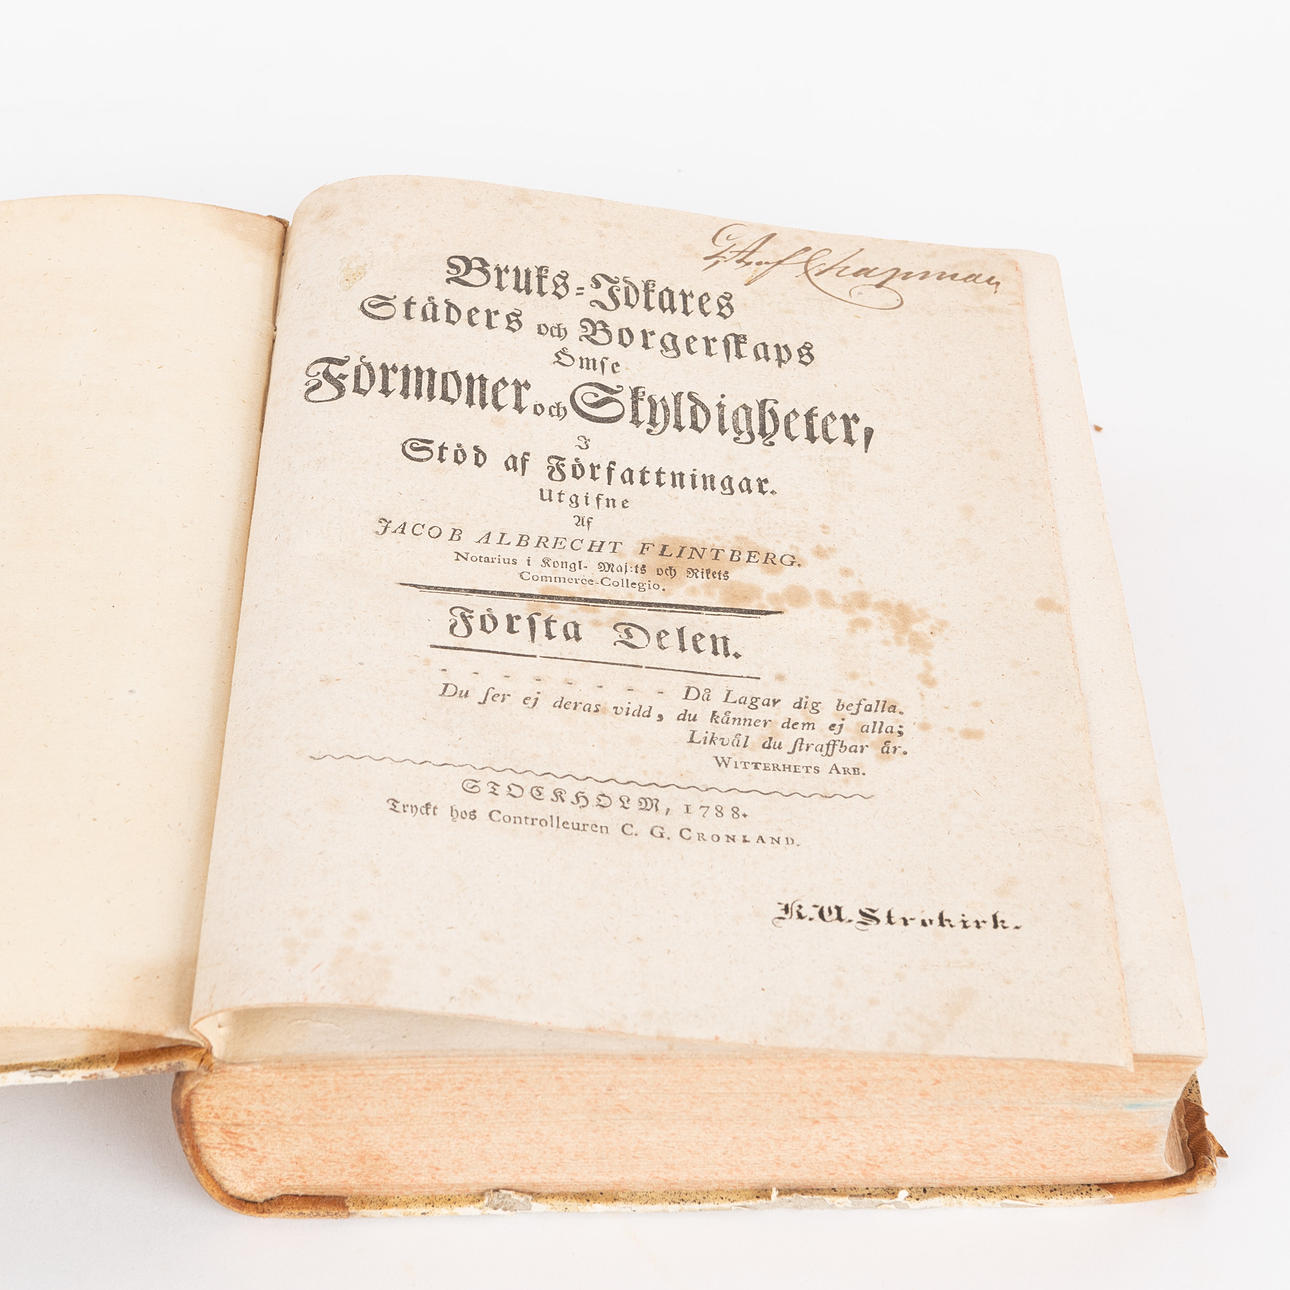 af Chapman
Bruks-Idkares
Städers och Borgerskaps
Ömse
Förmoner och Skyldigheter,
I
Stöd af Författningar.
Utgifne
Af
JACOB ALBRECHT FLINTBERG.
Notarius i Kongl. Maj:ts och Rikets
Commerce-Collegio.
Första Delen.
- - - - - - - - Då Lagar dig befalla.
Du ser ej deras vidd, du känner dem ej alla;
Likväl du straffbar är.
WITTERHETS ARB.
STOCKHOLM, 1788.
Tryckt hos Controlleuren C. G. CRONLAND.
K. A. Strokirk.